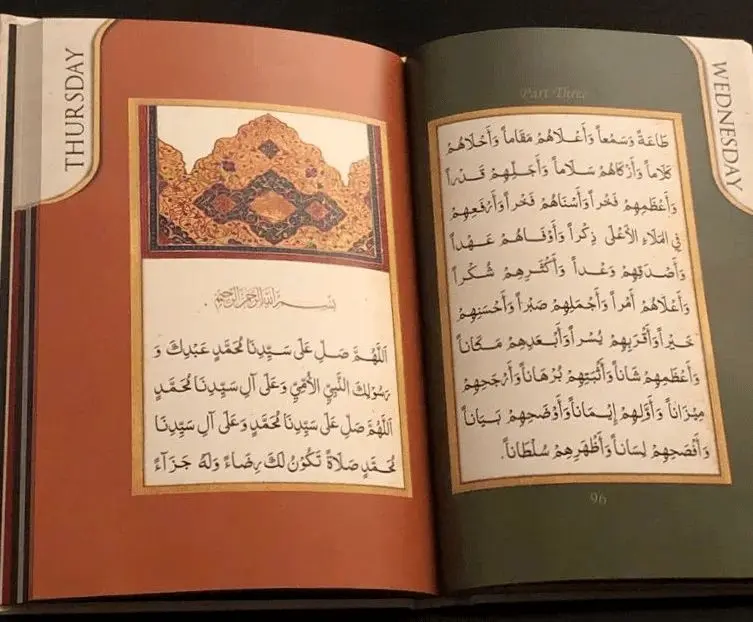 WEDNESDAY
Part Three
طَاعَةً وَسَمْعاً وَأَعْلَاهُمْ مَقَاماً وَأَحْلَاهُمْ
كَلَاماً وَأَزْكَاهُمْ سَلَاماً وَأَجَلِّهِمْ قَدْراً
وَأَعْظَمِهِمْ فَخْراً وَأَسْنَاهُمْ فَخْراً وَأَرْفَعِهِمْ
فِي المَلَاءِ الأَعْلَى ذِكْراً وَأَوْفَاهُمْ عَهْداً
وَأَصْدَقِهِمْ وَعْداً وَأَكْثَرِهِمْ شُكْراً
وَأَعْلَاهُمْ أَمْراً وَأَجْمَلِهِمْ صَبْراً وَأَحْسَنِهِمْ
خَيْراً وَأَقْرَبِهِمْ يُسْراً وَأَبْعَدِهِمْ مَكَاناً
وَأَعْظَمِهِمْ شَاناً وَأَثْبَتِهِمْ بُرْهَاناً وَأَرْجَحِهِمْ
مِيزَاناً وَأَوَّلِهِمْ إِيْمَاناً وَأَوْضَحِهِمْ بَيَاناً
وَأَفْصَحِهِمْ لِسَاناً وَأَظْهَرِهِمْ سُلْطَاناً.
96
THURSDAY
بِسْمِ اللهِ الرَّحْمَنِ الرَّحِيمِ
اَللَّهُمَّ صَلِّ عَلَى سَيِّدِنَا مُحَمَّدٍ عَبْدِكَ وَ
رَسُولِكَ النَّبِيِّ الأُمِّيِّ وَعَلَى آلِ سَيِّدِنَا مُحَمَّدٍ
اَللَّهُمَّ صَلِّ عَلَى سَيِّدِنَا مُحَمَّدٍ وَعَلَى آلِ سَيِّدِنَا
مُحَمَّدٍ صَلَاةً تَكُوْنُ لَكَ رِضَاءً وَلَهُ جَزَآءً